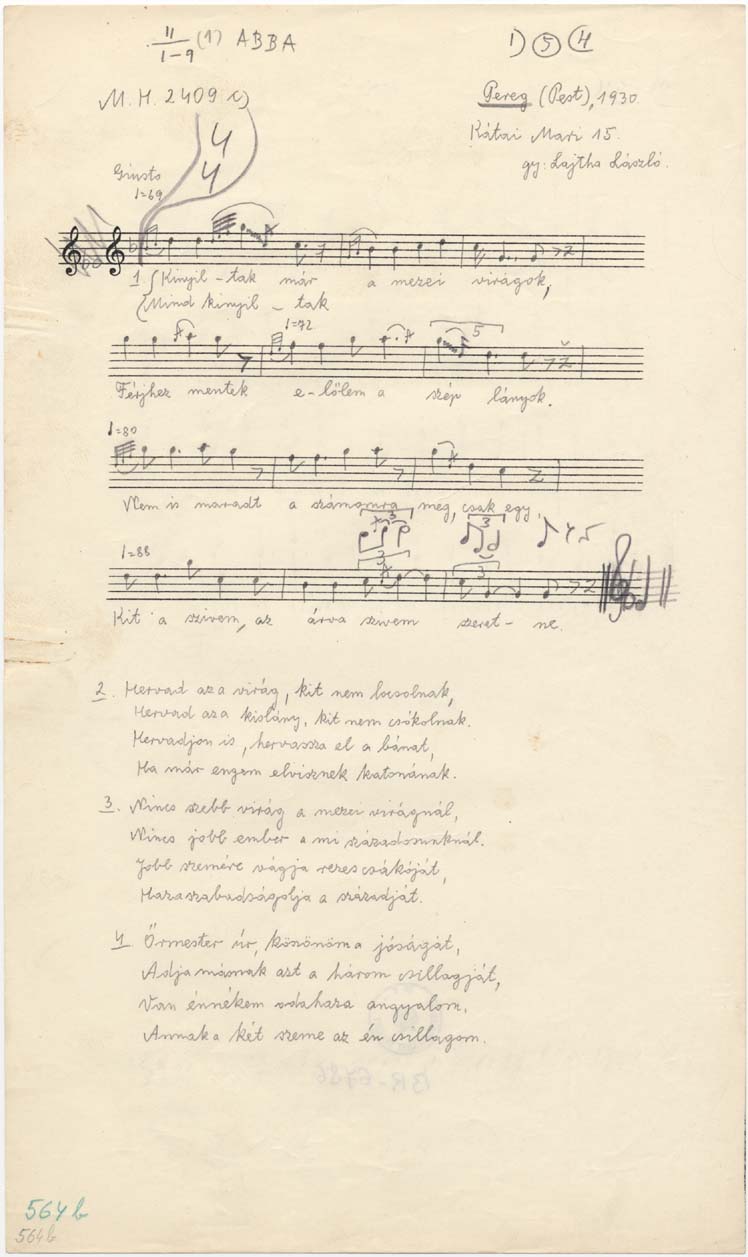 11/1-9 (1) ABBA
1) 5 4
M. H. 2409 c)
Pereg (Pest), 1930.
Kátai Mari 15.
gy: Lajtha László.
4
4
Giusto
♩=69
1. Kinyil-tak már a mezei virágok,
Mind kinyil-tak
♩=72
5
Férjhez mentek e-lőlem a szép lányok.
♩=80
Nem is maradt a számomra meg, csak egy,
3 3
♩=88
3 3
Kit a szivem, az árva szivem szeret-ne.
2. Hervad aza virág, kit nem locsolnak,
Hervad aza kislány, kit nem csókolnak.
Hervadjon is, hervassza el a bánat,
Ha már engem elvisznek katonának.
3. Nincs szebb virág a mezei virágnál,
Nincs jobb ember a mi századosunknál.
Jobb szemére vágja rezes csákóját,
Hazaszabadságolja a századját.
4. Őrmester úr, köszönöm a jóságát,
Adja másnak azt a három csillagját,
Van énnékem odahaza angyalom,
Annak a két szeme az én csillagom.
BR-6786
564 b
564b